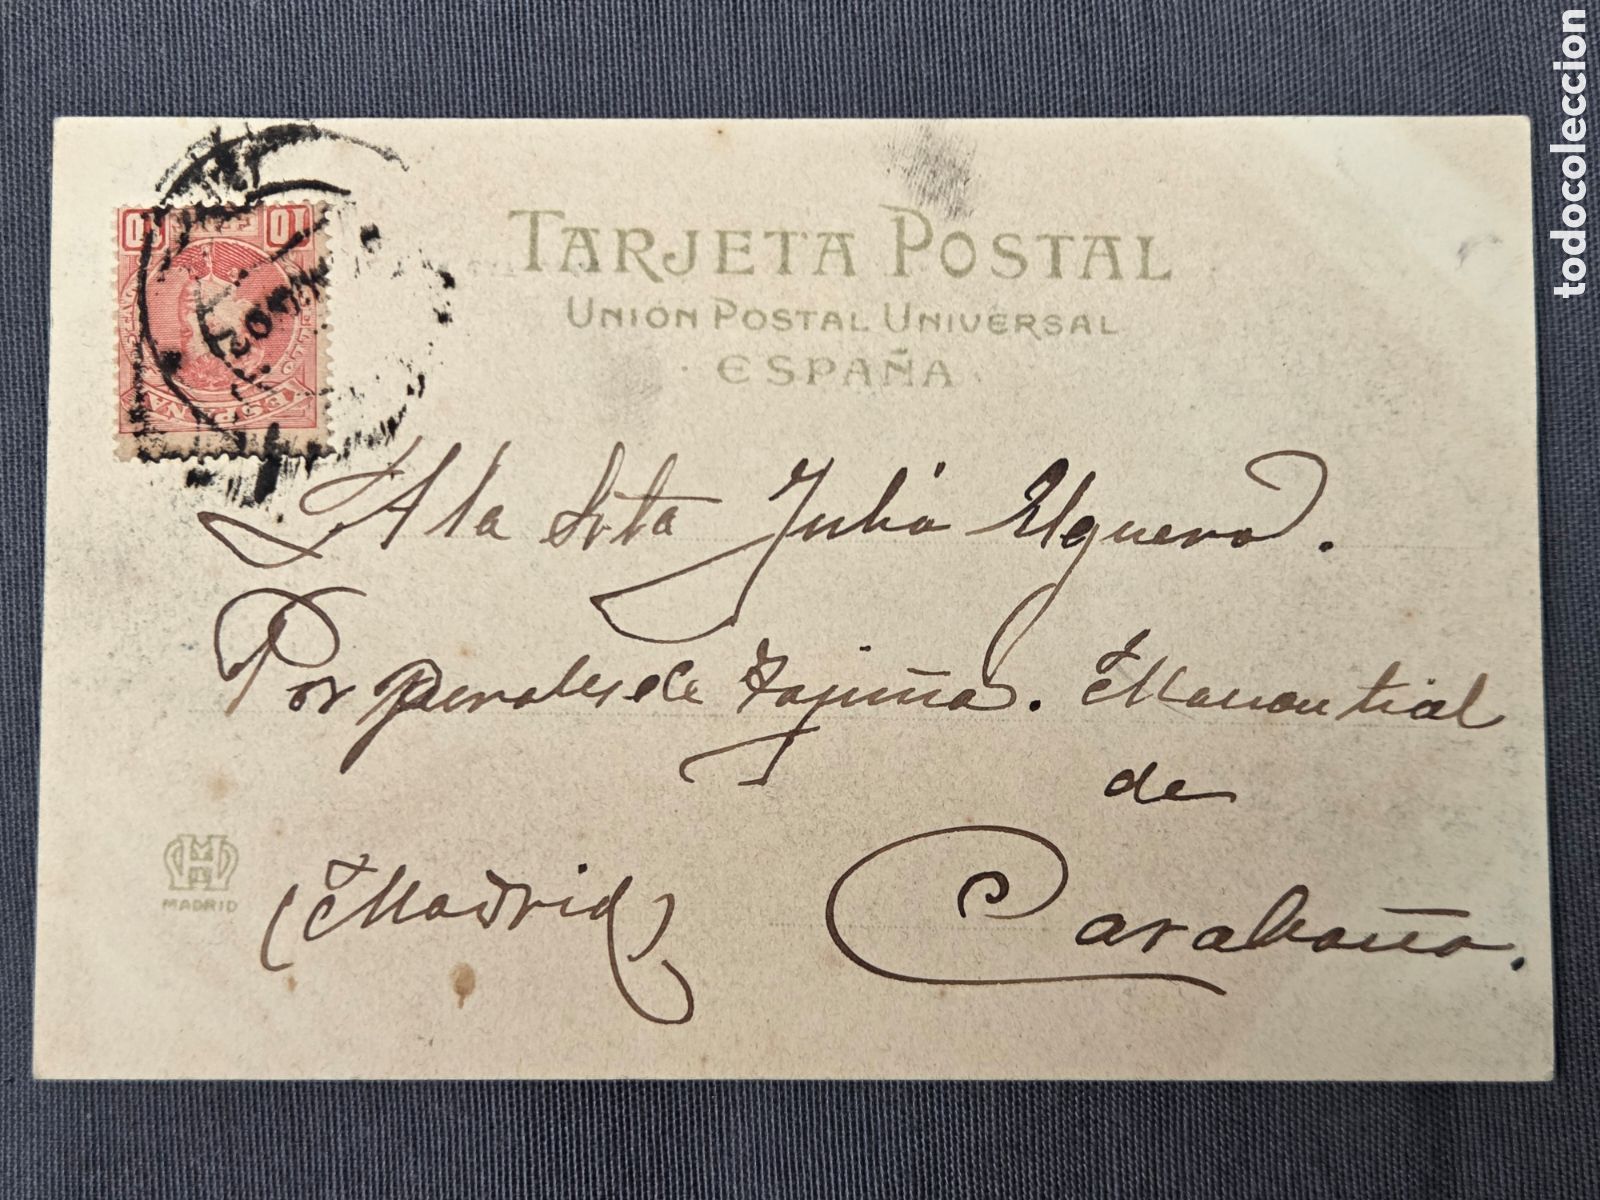 todocoleccion
TARJETA POSTAL
UNIÓN POSTAL UNIVERSAL
· ESPAÑA ·
10 10
ESPAÑA
A la Srta Julia Elguero.
Por Perales de Tajuña. Manantial
de
(Madrid) Carabaña.
MADRID